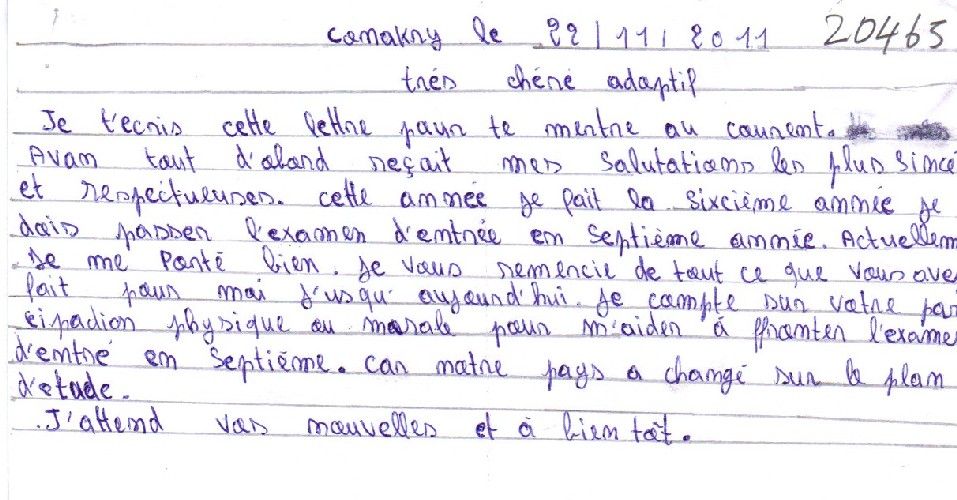 Conakry le 22/11/2011 20465
très chéré adaptif
Je t'ecris cette lettre pour te mentre au courent.
Avan tout d'abord reçait mes salutations les plus sincé
et respectueuses. cette année je fait la sixcième année je
dois passer l'examen d'entrée en septième année. Actuellem
Je me Porté bien. Je vous remencie de tout ce que vous ave
fait pour moi j'usqu' aujourd'hui. Je compte sur votre par
cipadion physique ou morale pour m'aider à ffronter l'exame
d'entré en septième. Car notre pays a changé sur le plan
d'etude.
J'attend vos nouvelles et à bien tot.